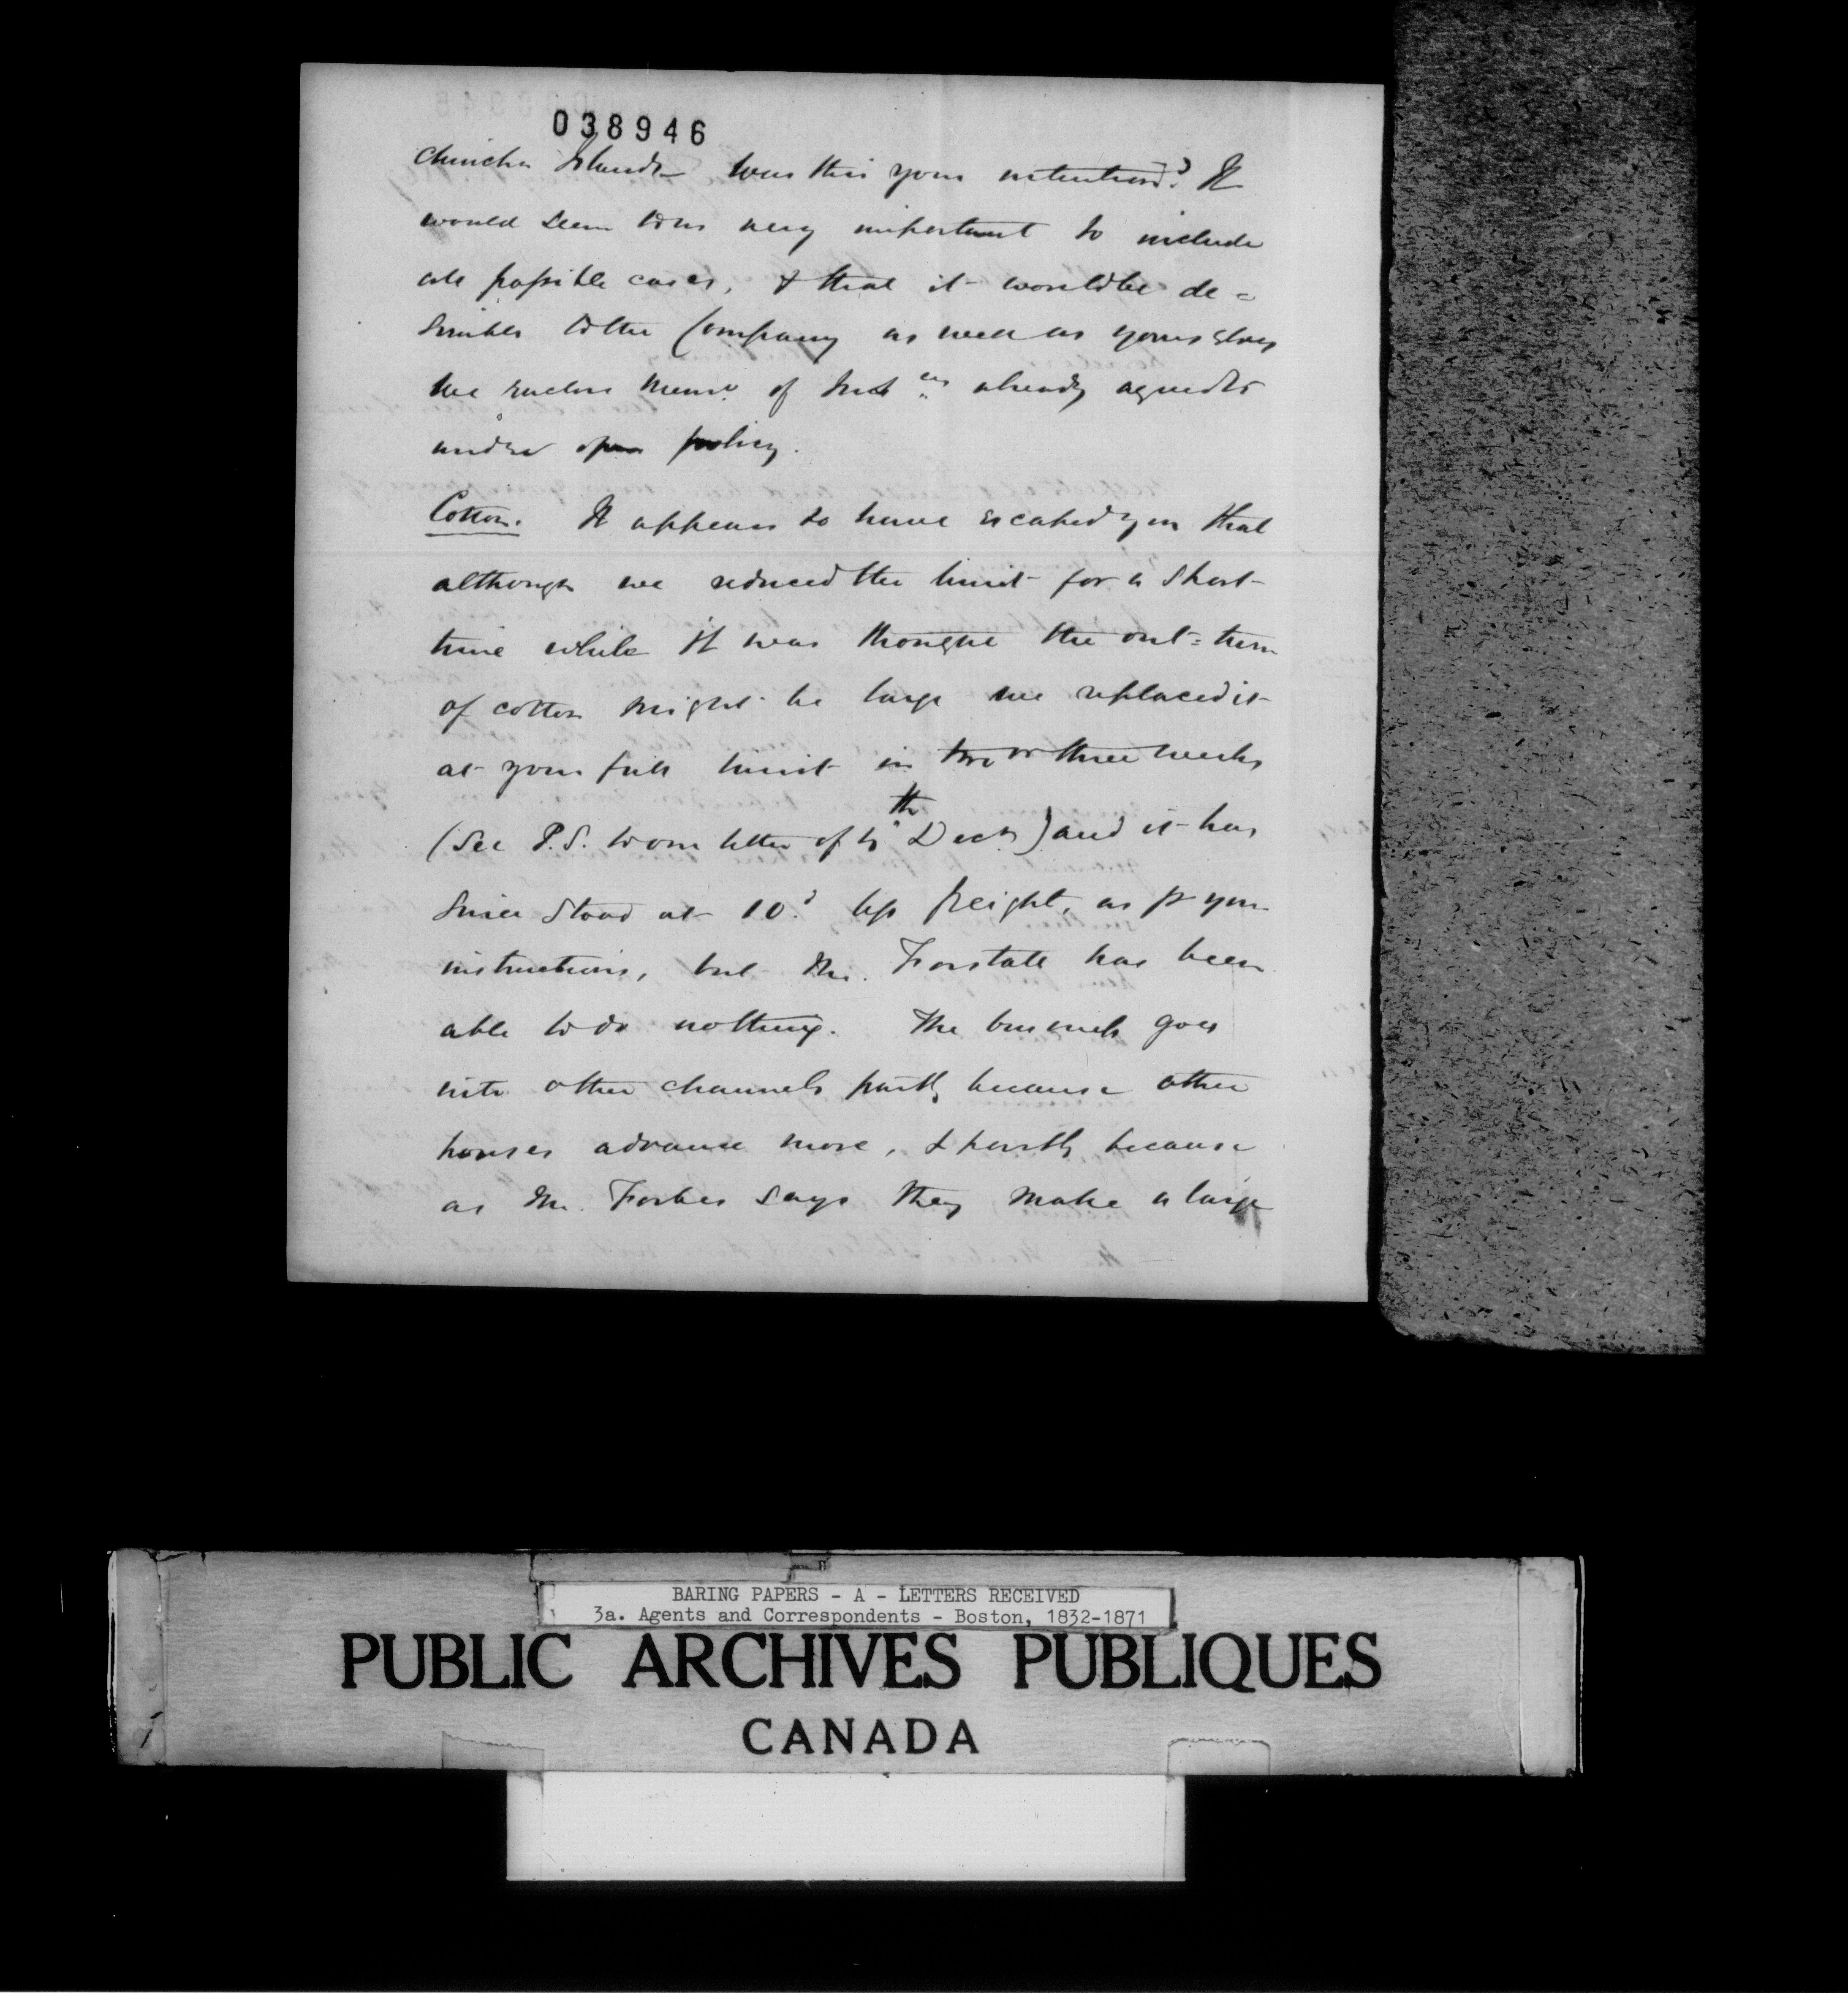 038946
Chincha Islands – Was this your intention? It
would seem to us very important to include
all possible cases, & that it would be de=
sirable to the Company as well as yourselves
we enclose Memo. of already agreed to
under open policy.
Cotton. It appears to have escaped you that
although we reduced the limit for a short
time while it was thought the out=turn
of cotton might be large we replaced it
at your full limit in two or three weeks
(See P.S. to our letter of th Decr.) and it has
since stood at 10d. less freight, as pr your
instructions, but Mr. Forstall has been
able to do nothing. The business goes
into other channels partly because other
houses advance more, & partly because
as Mr. Forbes says they make a large
BARING PAPERS - A - LETTERS RECEIVED
3a. Agents and Correspondents - Boston, 1832-1871
PUBLIC ARCHIVES PUBLIQUES
CANADA